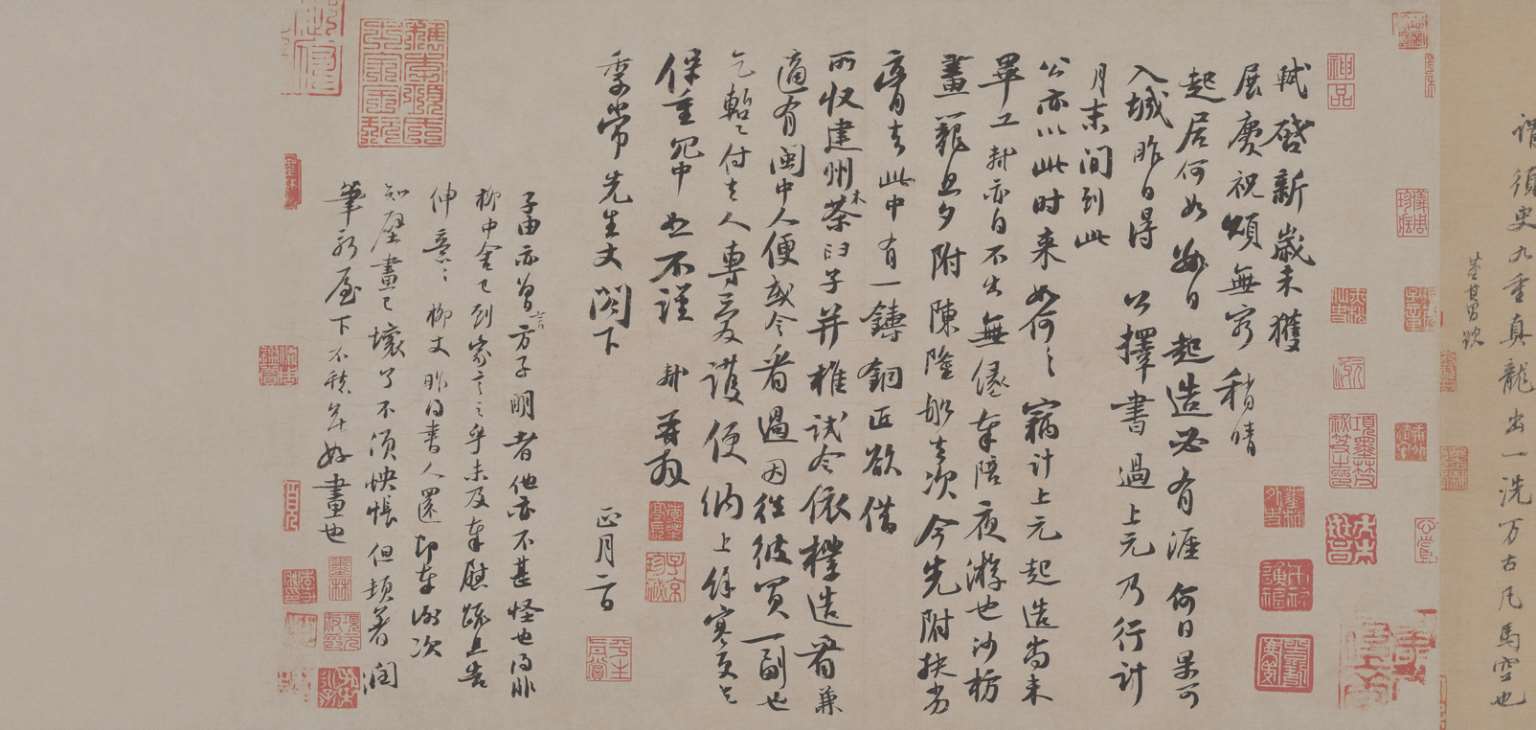 謂須臾九重真龍出一洗万古凡馬空也
董其昌跋
軾啓新歲未獲
展慶祝頌無窮稍晴
起居何如數日起造必有涯何日果可
入城昨日得公擇書過上元乃行計
月末間到此
公亦以此時来如何々竊計上元起造尚未
畢工軾亦自不出無緣奉陪夜游也沙枋
畫籠旦夕附陳隆船去次今先附扶劣
膏去此中有一鑄銅匠欲借
所收建州木茶臼子并椎試令依樣造看兼
適有閩中人便或令看過因往彼買一副也
乞暫付去人專愛護便納上餘寒更乞
保重冗中恕不謹軾再拜
季常先生丈閤下正月二日
子由亦曾言方子明者他亦不甚怪也得非
柳中舍已到家言之乎未及奉慰疏且告
伸意々柳丈昨得書人還即奉謝次
知壁畫已壞了不須怏悵但頓著潤
筆新屋下不愁無好畫也
神品